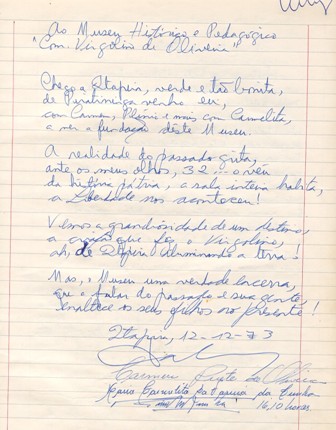 Ao Museu Histórico e Pedagógico
"Com. Virgolino de Oliveira"
Chego a Itapira, verde e tão bonita,
de Piratininga venho eu,
com Carmen, Plínio e mais com Carmelita,
a ver a fundação dêste Museu.
A realidade do passado grita,
ante os meus olhos, 32 o véu
da história pátria, a sala inteira habita,
a Liberdade nos aconteceu!
Vemos a grandiosidade de um destino,
a que fêz o Virgolino,
ah, de Itapira iluminando a terra!
Mas, o Museu uma verdade encerra,
que o falar do passado e sua gente,
enaltece os seus filhos no presente!
Itapira, 12-12-73
Carmen
Maria Carmelita da Cunha
16,10 horas